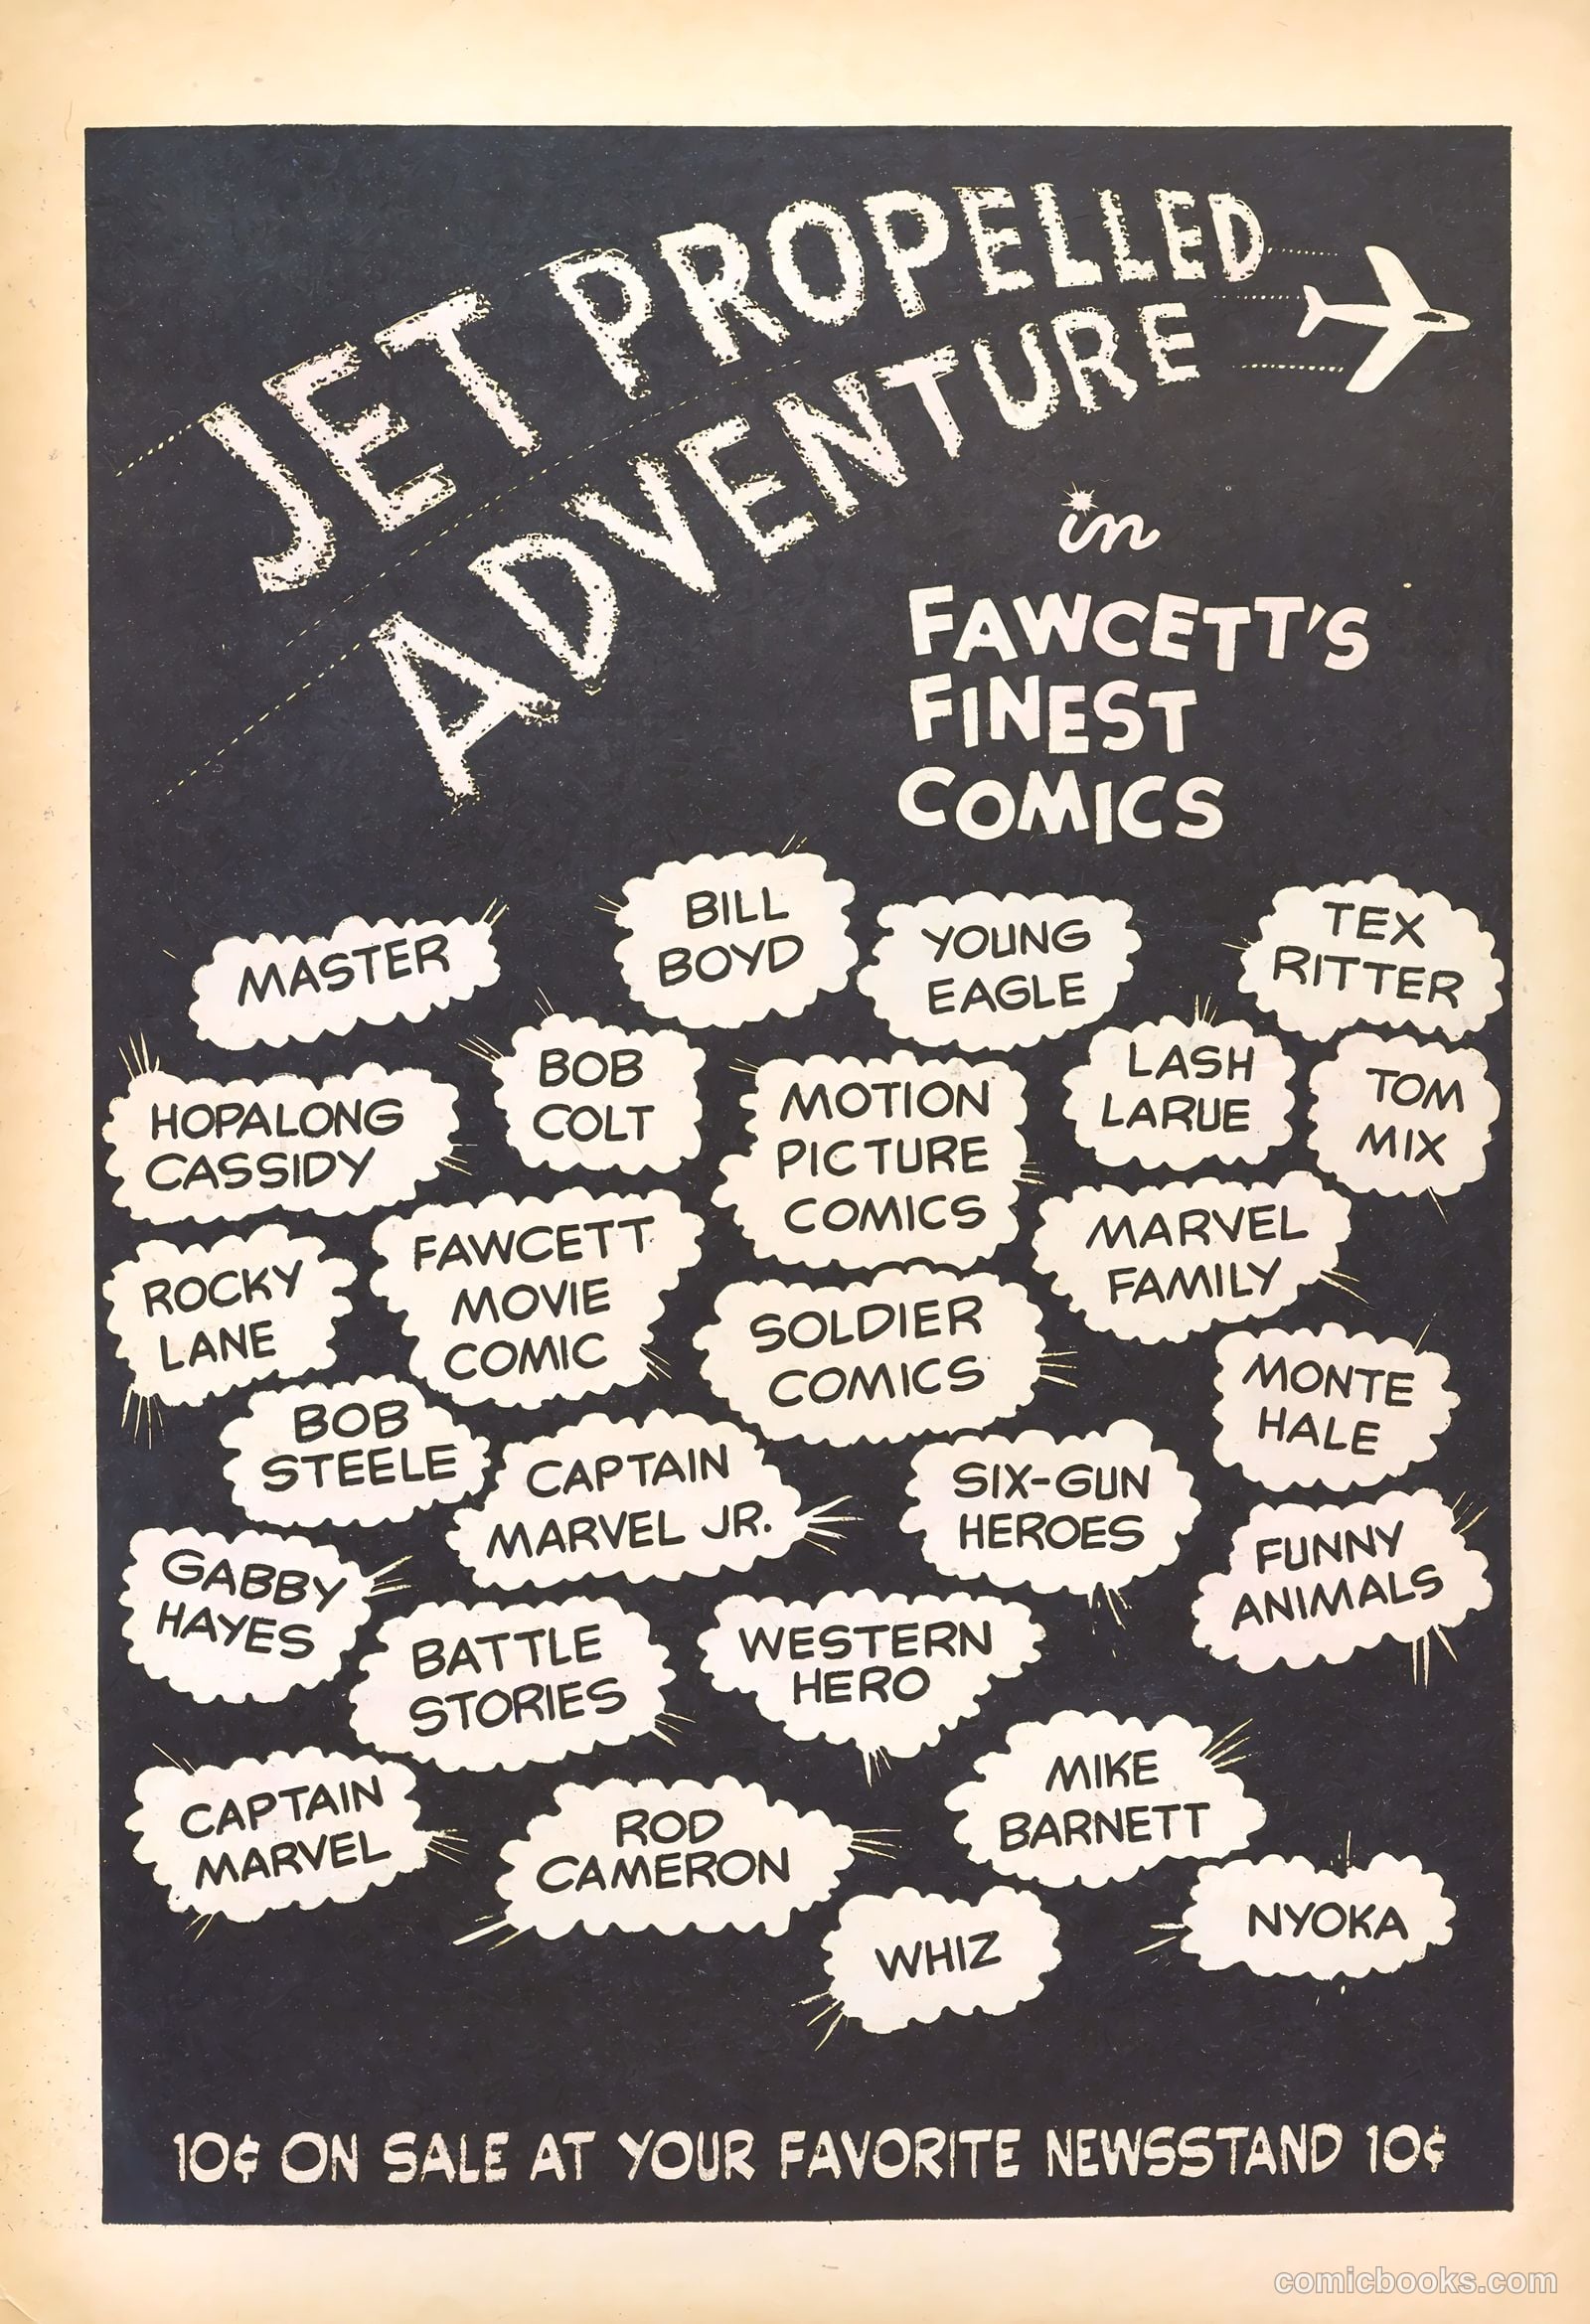 JET PROPELLED
ADVENTURE
in
FAWCETT'S
FINEST
COMICS
MASTER
BILL
BOYD
YOUNG
EAGLE
TEX
RITTER
HOPALONG
CASSIDY
BOB
COLT
MOTION
PICTURE
COMICS
LASH
LARUE
TOM
MIX
ROCKY
LANE
FAWCETT
MOVIE
COMIC
SOLDIER
COMICS
MARVEL
FAMILY
MONTE
HALE
BOB
STEELE
CAPTAIN
MARVEL JR.
SIX-GUN
HEROES
FUNNY
ANIMALS
GABBY
HAYES
BATTLE
STORIES
WESTERN
HERO
MIKE
BARNETT
CAPTAIN
MARVEL
ROD
CAMERON
WHIZ
NYOKA
10¢ ON SALE AT YOUR FAVORITE NEWSSTAND 10¢
comicbooks.com